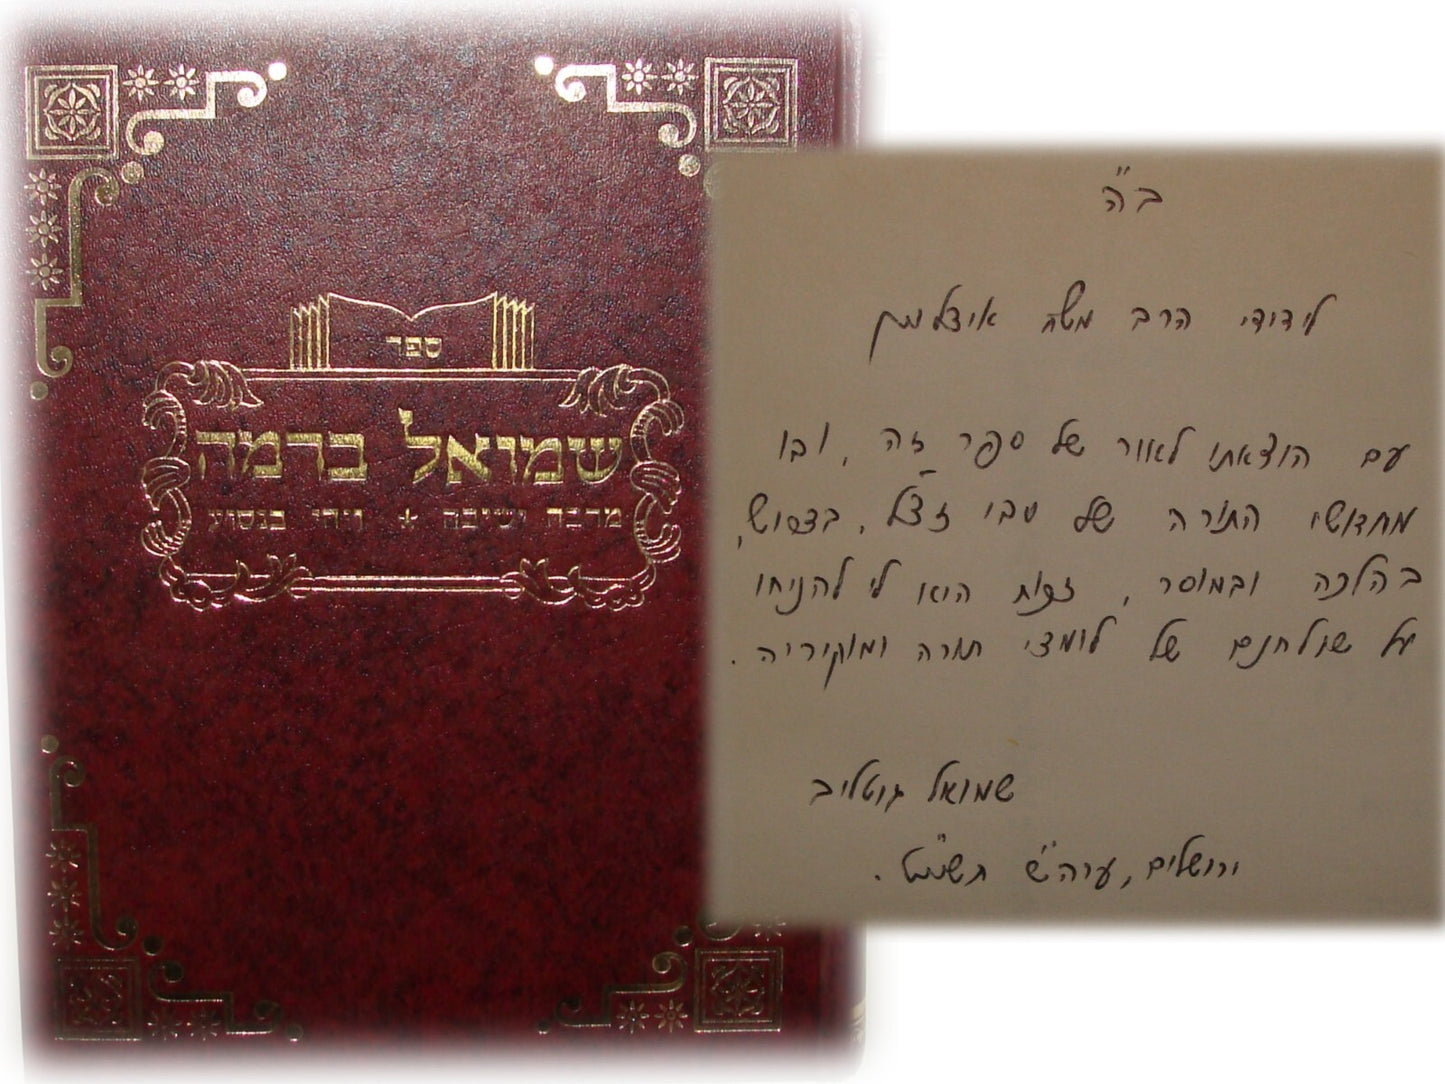 ספר
שמואל ברמה
מרבה ישיבה * ויהי בנסוע
ב"ה
לידידי הרב משה איצלמן
עם הוצאתו לאור של ספר זה, ובו
מחדושי התורה של סבי זצ"ל, בדרוש,
בהלכה ובמוסר, זכות היא לי להניחו
על שולחנם של לומדי תורה ומוקיריה.
שמואל גוטליב
ירושלים, ערה"ש תשנ"ט.